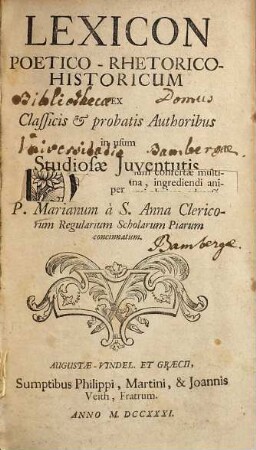 LEXICON
POETICO - RHETORICO-
HISTORICUM
Bibliothecæ EX Domus
Classicis & probatis Authoribus
in usum
Universitatis Bambergæ
Studiosæ Juventutis
ium consertæ multi-
ina, ingrediendi ani-
per
P. Marianum à S. Anna Clerico-
rum Regularium Scholarum Piarum
concinnatum.
Bambergæ.
AUGUSTÆ-VINDEL. ET GRÆCII,
Sumptibus Philippi, Martini, & Joannis
Veith, Fratrum.
ANNO M. DCCXXXI.